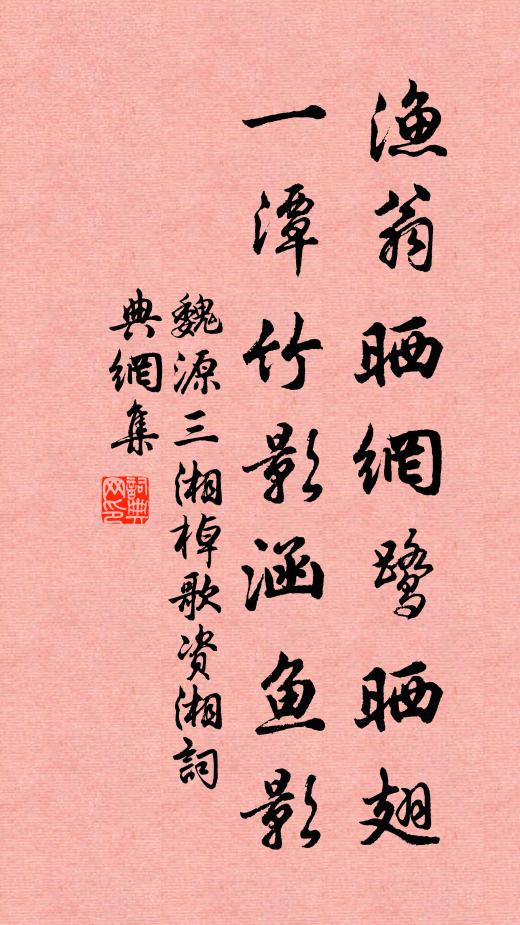 漁翁晒網鷺晒翅
一潭竹影涵鱼影
魏源三湘棹歌资湘詞
典網集
詞典網印